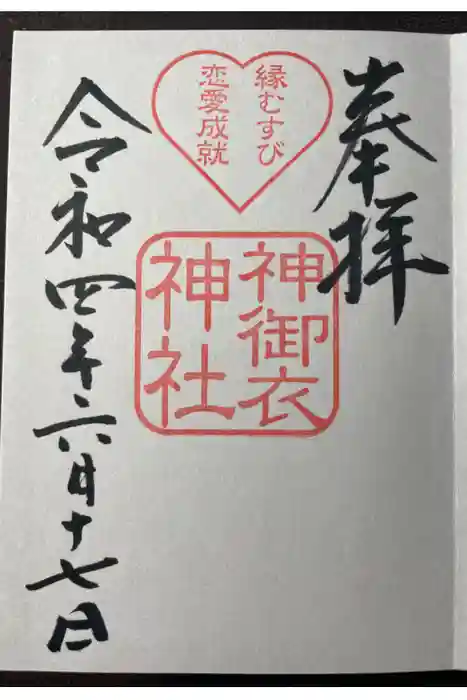 奉拝
縁むすび
恋愛成就
神御衣
神社
令和四年六月十七日